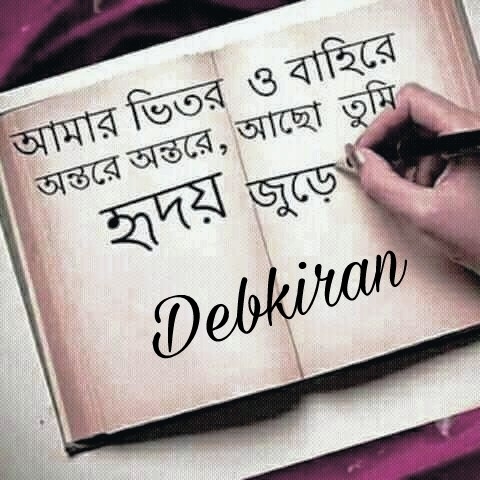 আমার ভিতর ও বাহিরে
অন্তরে অন্তরে, আছো তুমি
হৃদয় জুড়ে
Debkiran